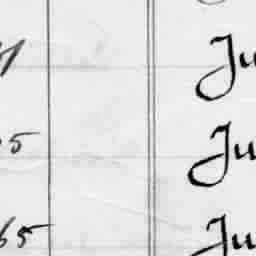 Ju
5 Ju
65 Ju